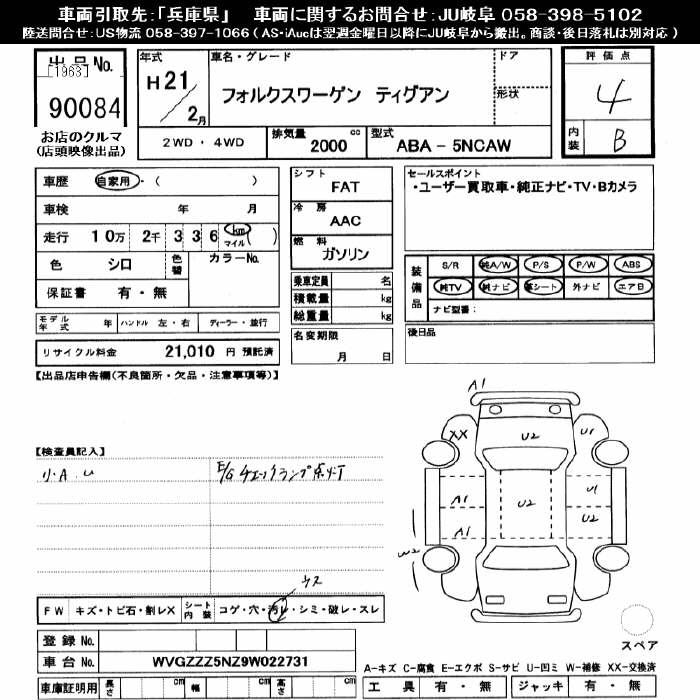 車両引取先:「兵庫県」 車両に関するお問合せ:JU岐阜 058-398-5102
陸送問合せ:US物流 058-397-1066 (AS・iAucは翌週金曜日以降にJU岐阜から搬出。商談・後日落札は別対応)
出品No.
[1963]
90084
お店のクルマ
(店頭映像出品)
年式 H21/2月
車名・グレード
フォルクスワーゲン ティグアン
ドア
形状
2WD・4WD
排気量 2000 cc
型式 ABA-5NCAW
評価点
4
内装 B
車歴 自家用・( )
車検 年 月
走行 10万 2千 3 3 6 km マイル ( )
色 シロ 色替 カラーNo.
保証書 有・無
モデル年式 年 ハンドル 左・右 ディーラー・並行
リサイクル料金 21,010 円 預託済
シフト FAT
冷房 AAC
燃料 ガソリン
乗車定員 名
積載量 kg
総重量 kg
名変期限
月 日
セールスポイント
・ユーザー買取車・純正ナビ・TV・Bカメラ
装備品
S/R 純A/W P/S P/W ABS
純TV 純ナビ 革シート 外ナビ エアB
ナビ型番:
後日品
【出品店申告欄(不良箇所・欠品・注意事項等)】
【検査員記入】
小A.U
E/Gチェックランプ点灯
A1
XX
U2
U1
A1
U2
U1
A1
U2
W2
ウス
FW キズ・トビ石・割レX
シート内装 コゲ・穴・汚レ・シミ・破レ・スレ
登録No.
車台No. WVGZZZ5NZ9W022731
車庫証明用 長さ cm 幅 cm 高さ cm
スペア
A-キズ C-腐食 E-エクボ S-サビ U-凹ミ W-補修 XX-交換済
工具 有・無 ジャッキ 有・無